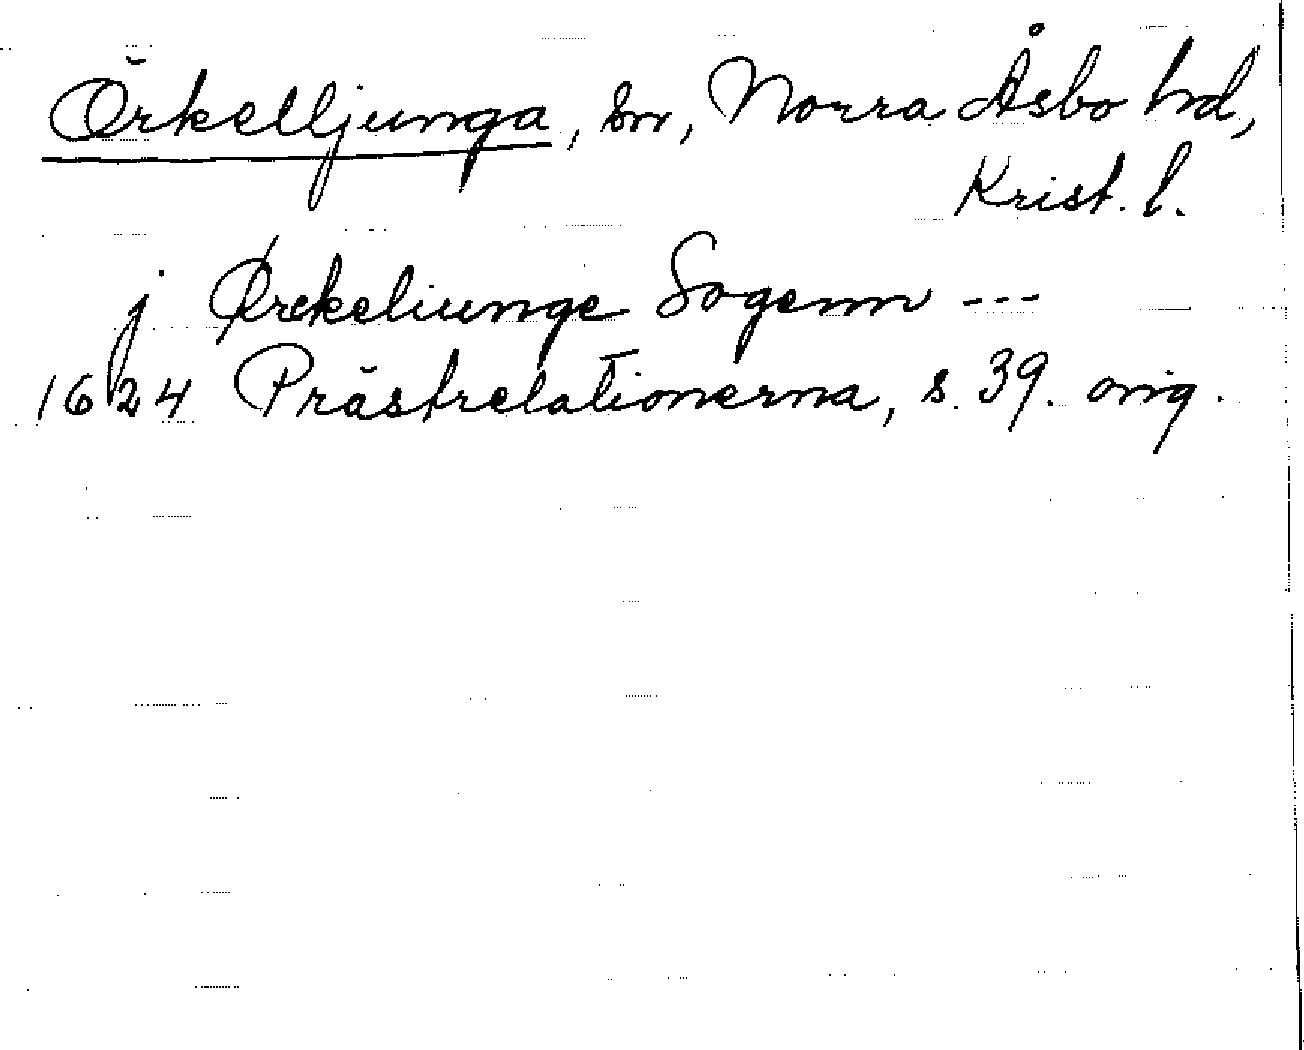 Örkelljunga, sn, Norra Åsbo hd,
Krist. l.
j Ørckeliunge Sogenn ---
1624 Prästrelationerna, s. 39. orig.